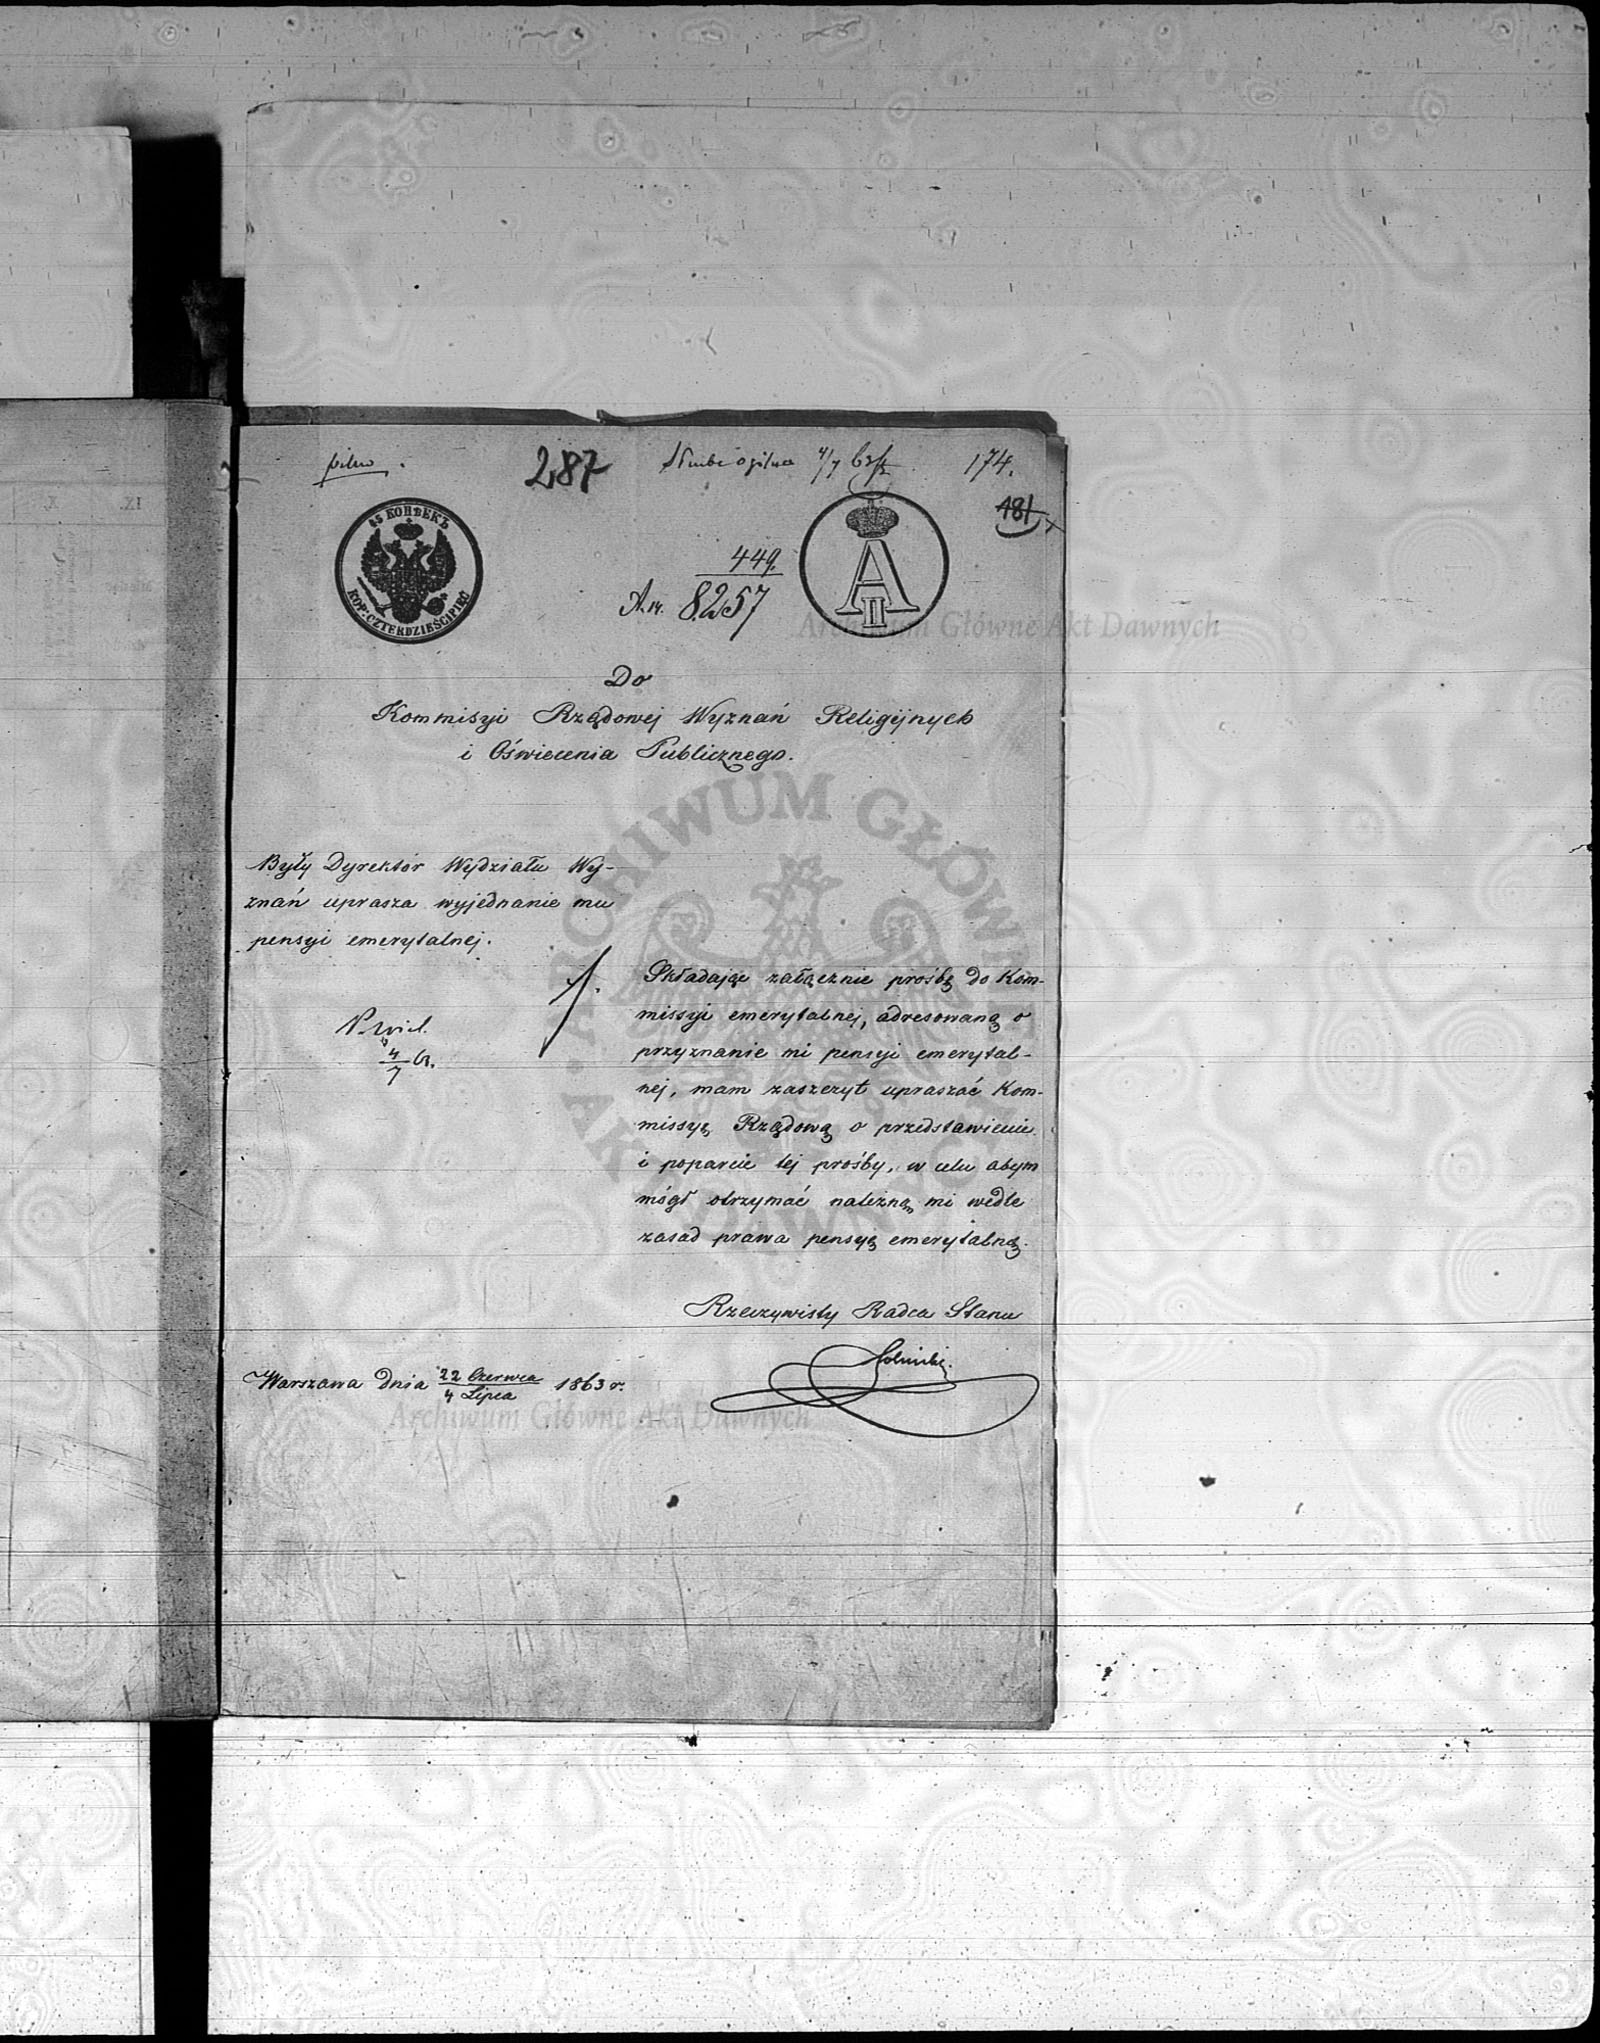 pilno.
287
4/7 63
174.
181
45 КОПѢЕКЪ
KOP: CZTERDZIEŚCI PIĘĆ
A II
449.
A.14. 8257
Archiwum Główne Akt Dawnych
Do
Kommisyi Rządowej Wyznań Religijnych
i Oświecenia Publicznego.
Były Dyrektór Wydziału Wy-
znań uprasza wyjednanie mu
pensyi emerytalnej.
4/7 63.
Składając załącznie prośbę do Kom-
missyi emerytalnej, adresowaną o
przyznanie mi pensyi emerytal-
nej, mam zaszczyt upraszać Kom-
missyą Rządową o przedstawienie
i poparcie tej prośby, w celu abym
mógł otrzymać należną mi wedle
zasad prawa pensyę emerytalną.
Rzeczywisty Radca Stanu
Warszawa dnia 22 Czerwca / 4 Lipca 1863 r.
Archiwum Główne Akt Dawnych
ARCHIWUM GŁÓWNE AKT DAWNYCH